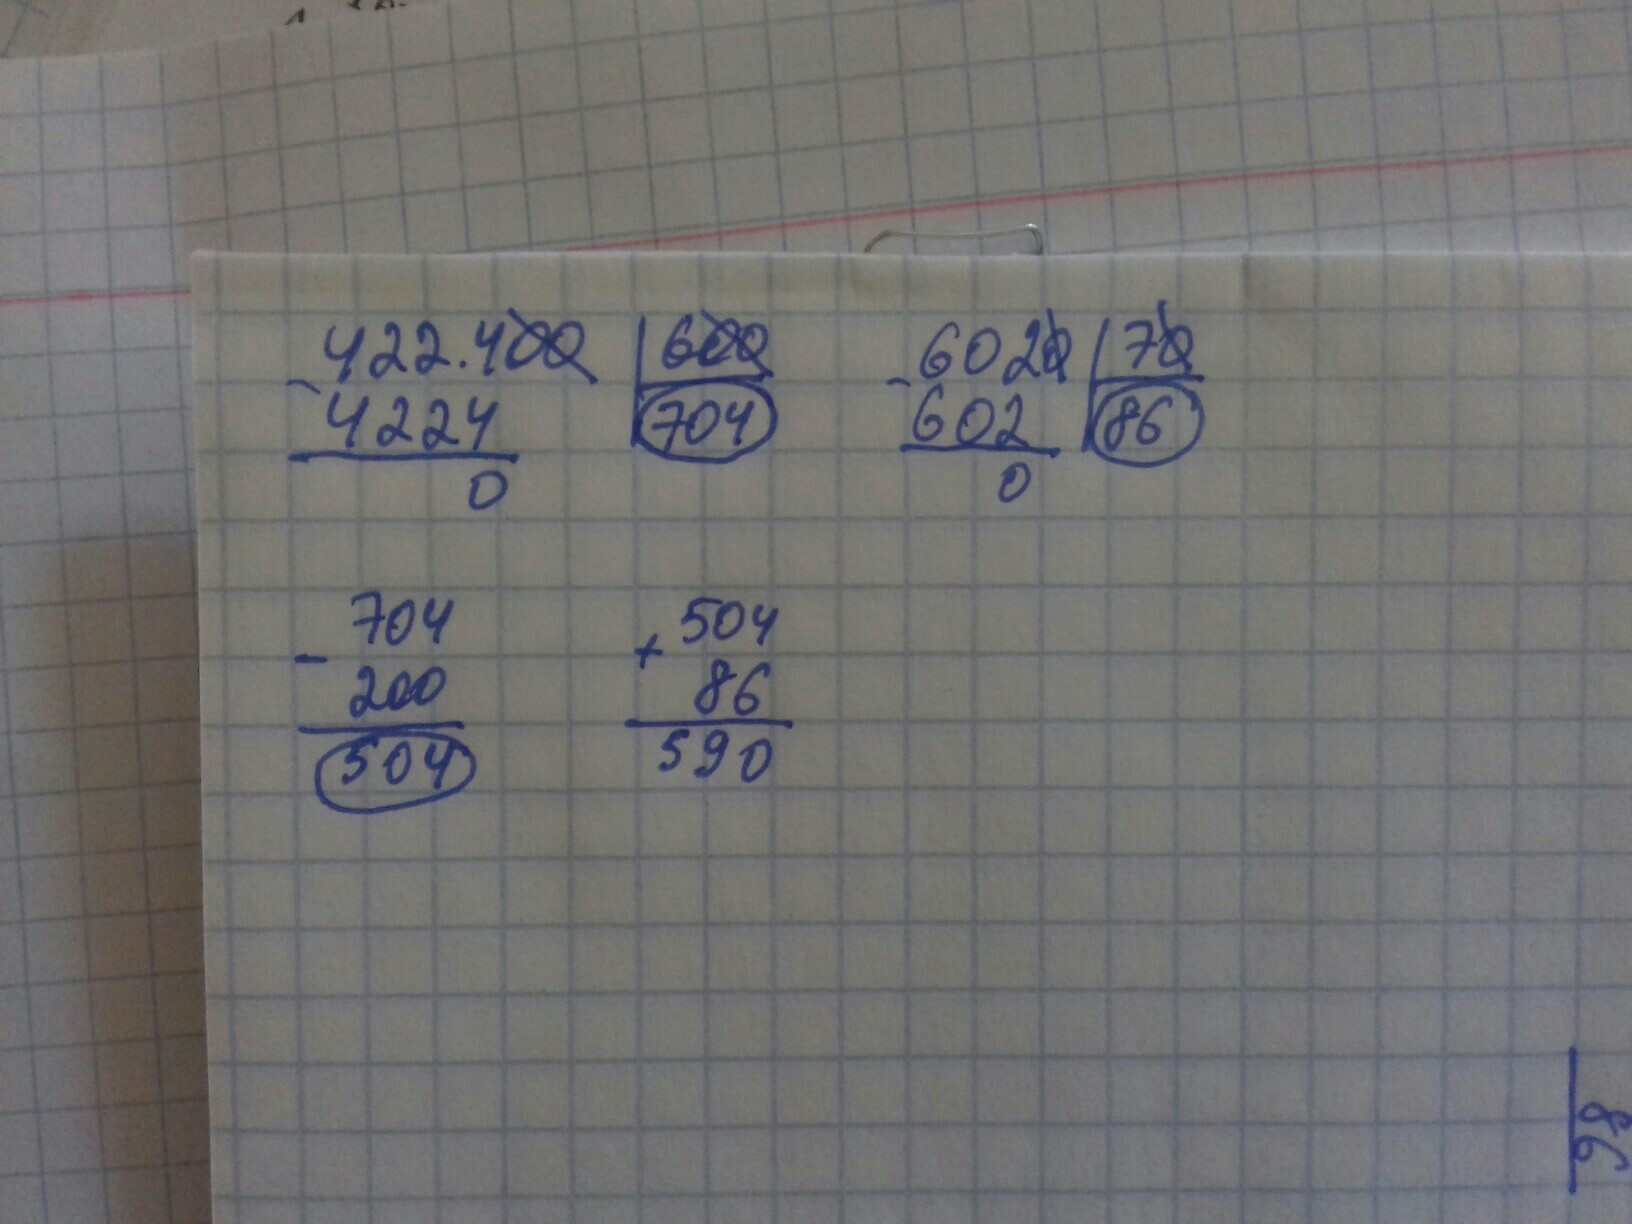 422.400 600 6020 70
- 4224 704 - 602 86
0 0
704 504
- 200 + 86
504 590
86